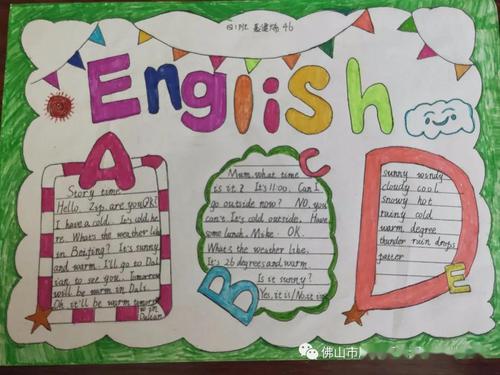 四1班 46
English
A
Story time
Hello, Zip. are you OK?
I have a cold. It's cold he
re. What's the weather like
in Beijing? It's sunny
and warm. I'll go to Dali
ian to see you. Tomorrow
will be warm in Dali.
Oh it'll be warm tomorrow
in
Dalian
B
C
Mum, what time
is it? It's 11:00. Can I
go outside now? NO, you
can't. It's cold outside. Have
some lunch. Mike. OK.
What's the weather like.
It's 26 degrees and warm
Is it sunny?
Yes, it is/No, it isn't
D
E
sunny windy
cloudy cool
snowy hot
rainy cold
warm degree
thunder rain drops
patter
佛山市